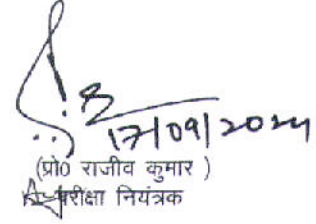 17/09/2024
(प्रो० राजीव कुमार )
परीक्षा नियंत्रक